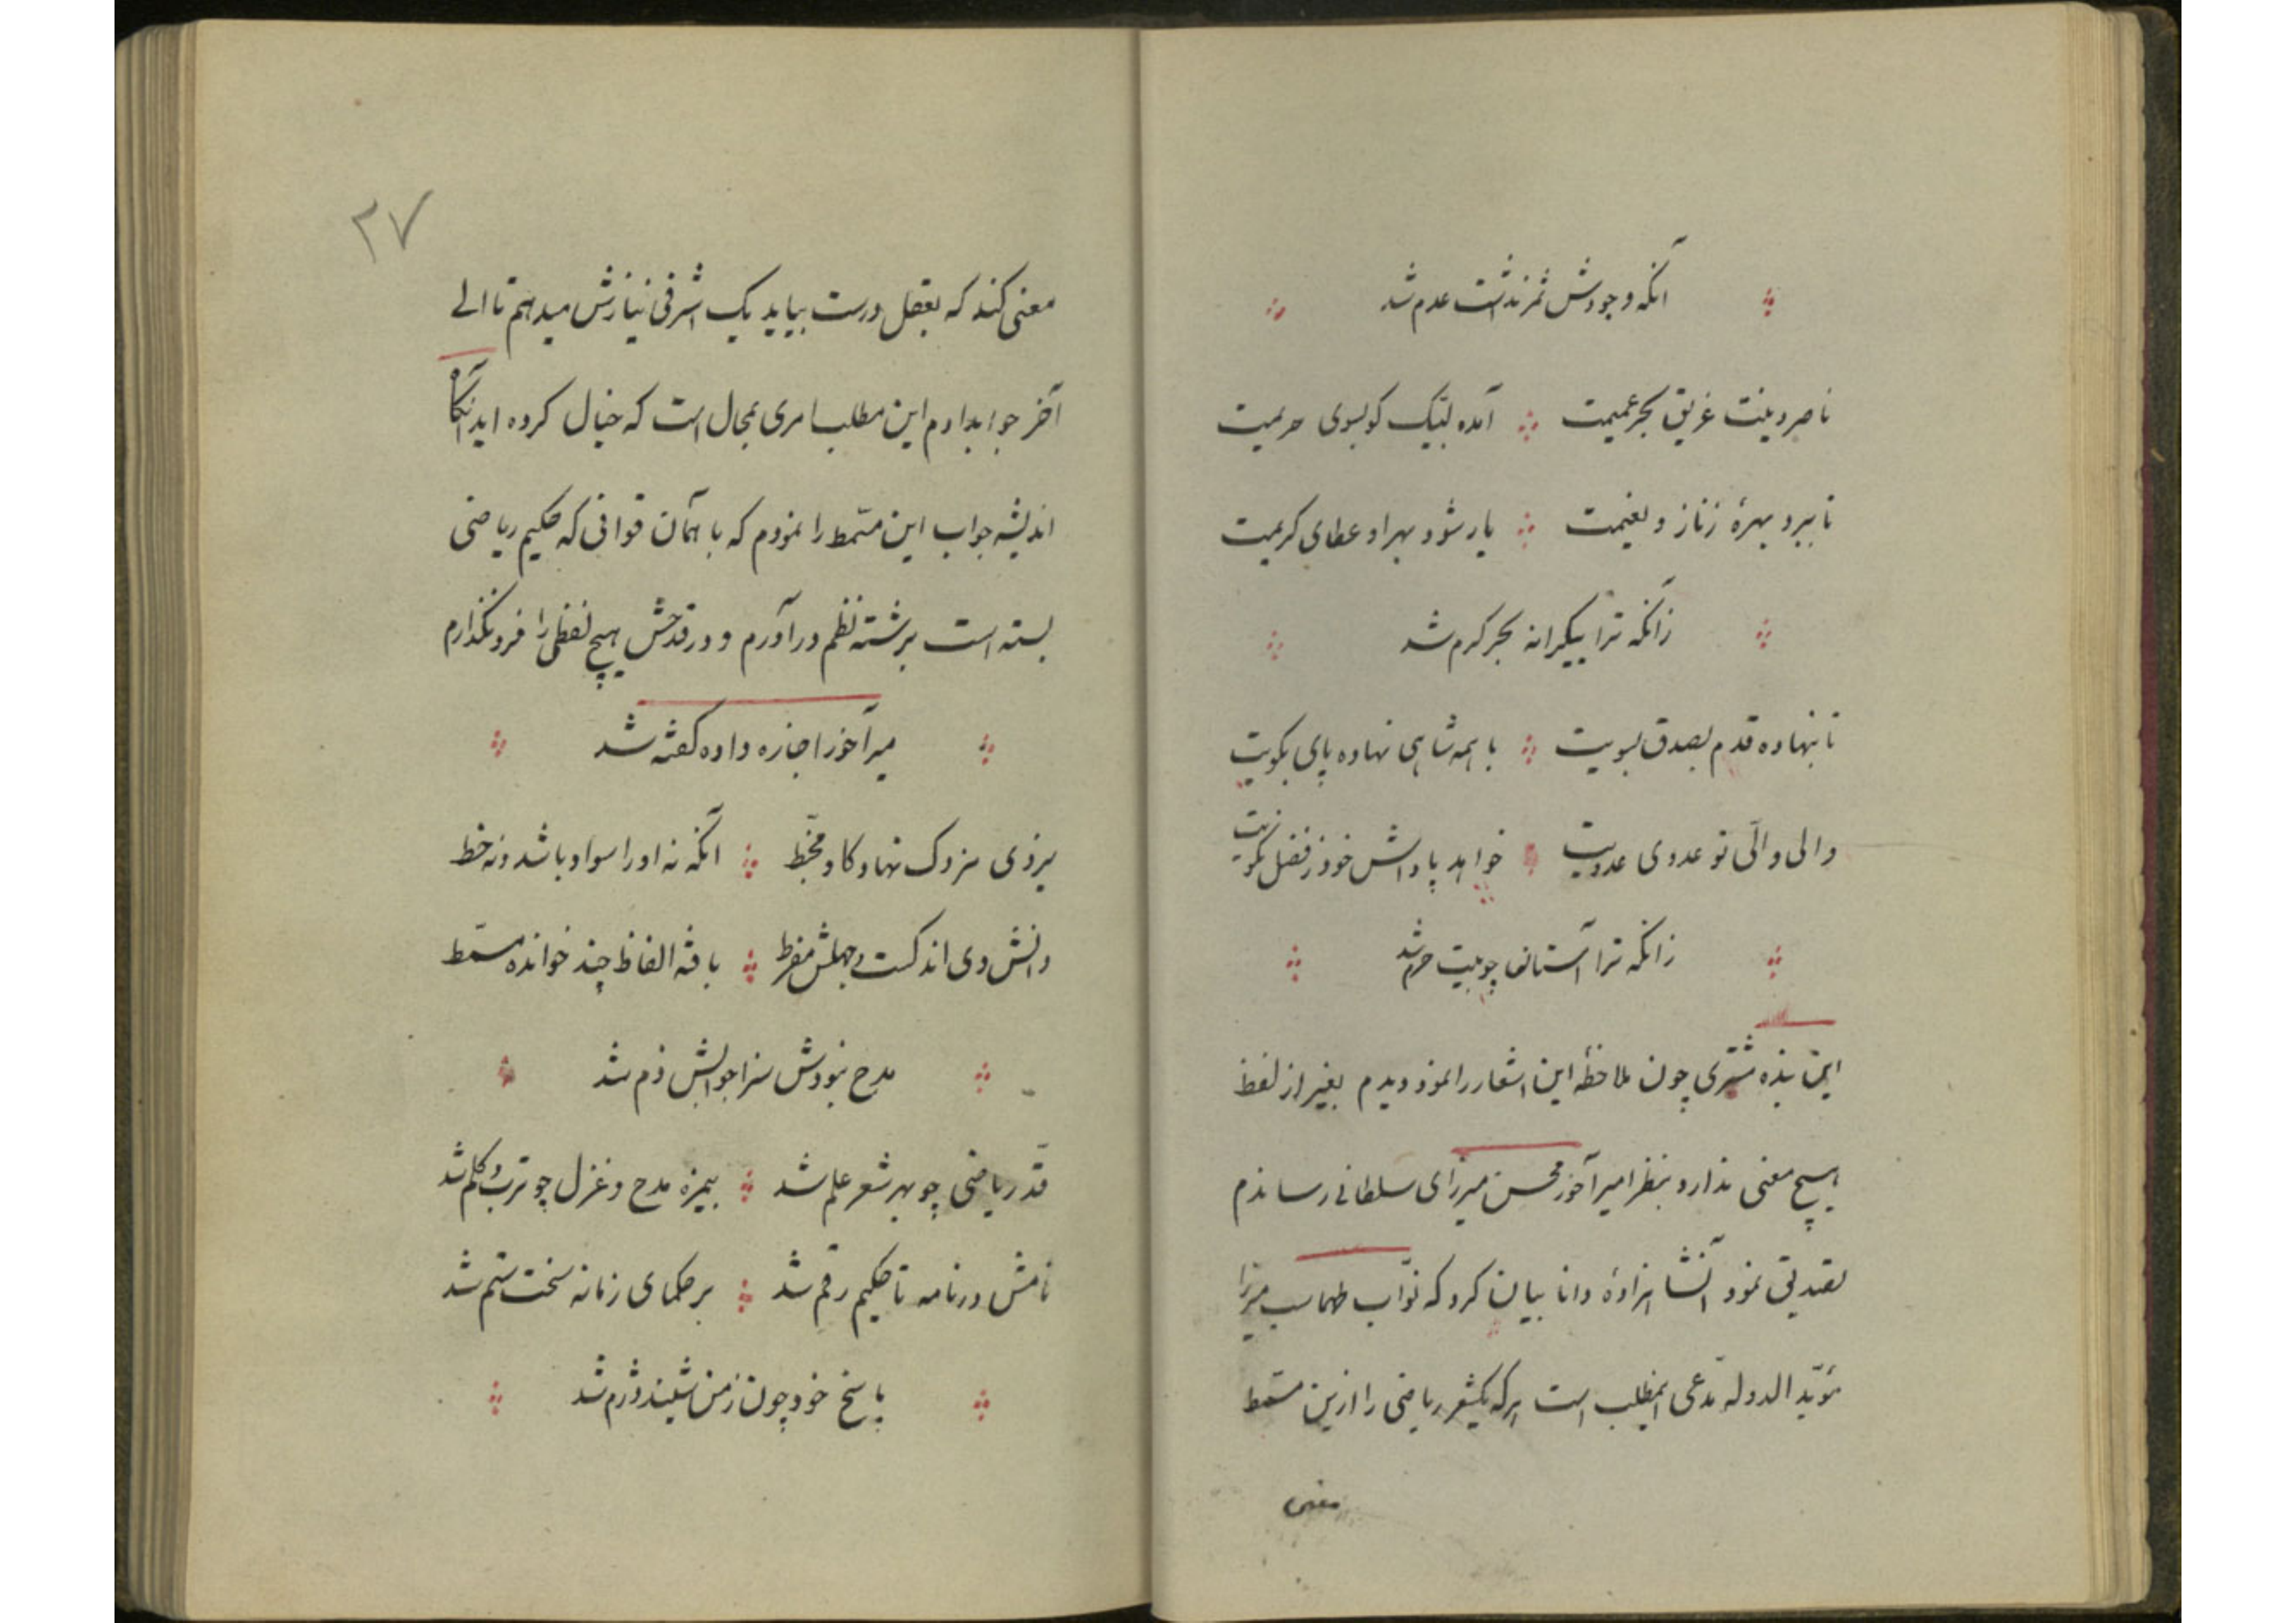 آنکه وجودش ثمر نداشت عدم شد
ناصر دینت غریق بحر عمیمت آمده لبیک گو بسوی حریمت
تا ببرد بهرهٔ ز ناز و نعیمت یار شود بهر او عطای کریمت
زآنکه ترا بیکرانه بحر کرم شد
تا بنهاده قدم بصدق بسویت با همه شاهی نهاده پای بکویت
والی والّی تو عدوی عدویت خواهد پاداش خود ز فضل نکویت
زانکه ترا آستان چو بیت حرم شد
این بنده مشتری چون ملاحظهٔ این اشعار را نمود دیدم بغیر از لفظ
هیچ معنی ندارد بنظر امیرآخور محسن میرزای سلطانی رساندم
تصدیق نمود آنشاهزادهٔ دانا بیان کرد که نوّاب طهماسب میرزا
مؤیّد الدوله مدّعی اینمطلب است هرکه یکشعر ریاضی را ازین مسمّط
معنی
۲۷
معنی کند که بعقل درست بیاید یک اشرفی نیازش میدهم تا الی
آخر جواب دادم این مطلب امری بمحال است که خیال کرده اید آنگاه
اندیشه جواب این مسمّط را نمودم که با همان قوافی که حکیم ریاضی
بسته است برشته نظم درآورم و در قدحش هیچ لفظی را فرو نگذارم
میرآخور اجازه داده گفته شد
آنکه نه او را سواد باشد و نه خط
دانش وی اندکست و جهلش مفرط بافته الفاظ چند خوانده مسمّط
مدح نبودش سزا جوابش ذم شد
قدّ ریاضی چو بهر شعر علم شد بیمزه مدح و غزل چو ترب و کلم شد
نامش در نامه تا حکیم رقم شد بر حکمای زمانه سخت ستم شد
پاسخ خود چون ز من شنید دژم شد